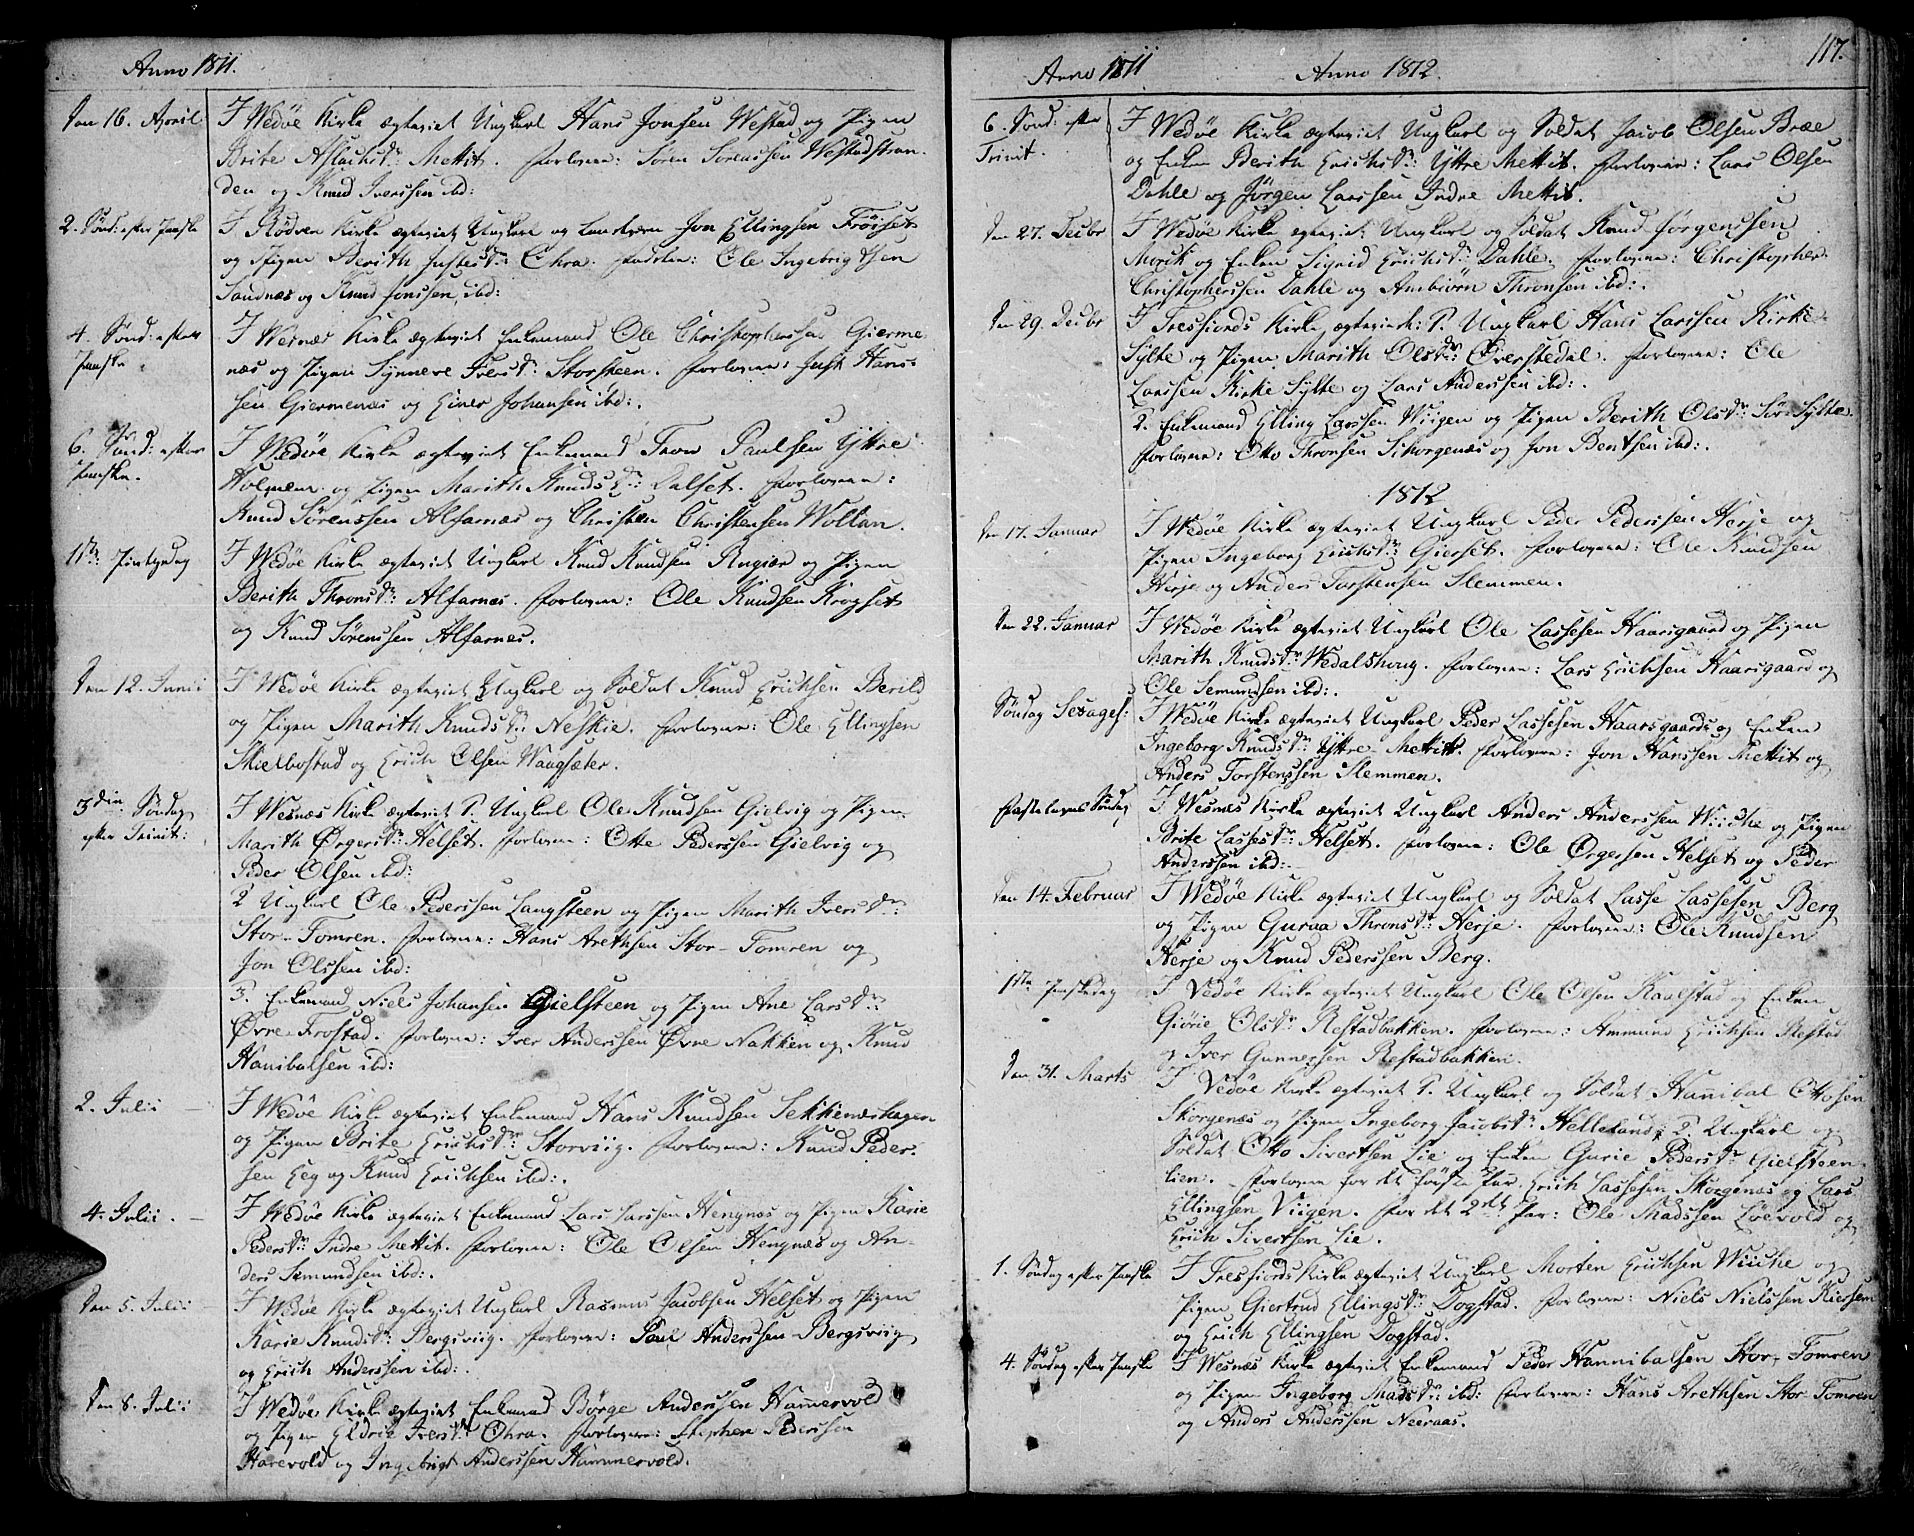 Anno 1811.
Den 16. April
I Wedöe Kirke ægteviet Ungkarl Hans Jonsen Westad og Pigen
Brite Aslachsdr: Mettit. Forlovere: Sören Sörenssen Westadstran-
den og Knud Iverssen ibd:
2. Sönd: efter Paaske
I Rödven Kirke ægteviet Ungkarl og Landværn Jon Ellingsen Fröiset
og Pigen Berith Justesdr: Ohra. Forlovere: Ole Ingebrigtsen
Sandnæs og Knud Jonssen, ibd:
4. Sönd: efter
Paaske
I Wesnæs Kirke ægteviet Enkemand Ole Christophersen Gierme-
næs og Pigen Synneve Iversdr: Storsteen. Forlovere: Just Hans-
sen Giermenæs og Einer Johansen ibd:.
6. Sönd: efter
Paaske.
I Wedöe Kirke ægteviet Enkemand Tron Paulsen Yttre
Holmem og Pigen Marith Knudsdr: Dalset. Forlovere:
Knud Sörenssen Alfarnæs og Christen Christensen Wollan.
1ste Pintsedag
I Wedöe Kirke ægteviet Ungkarl Knud Knudsen Rngiær og Pigen
Berith Thronsdr: Alfarnæs. Forlovere: Ole Knudsen Krogset
og Knud Sörenssen Alfarnæs.
Den 12. Junii
I Wedöe Kirke ægteviet Ungkarl og Soldat Knud Erichsen Berild
og Pigen Marith Knudsdr: Neskie. Forlovere: Ole Ellingsen
Skielbostad og Erich Olsen Waagsæter.
3die Söndag
efter Trinit:
I Wesnæs Kirke ægteviet 1. Ungkarl Ole Knudsen Gielvig og Pigen
Marith Örgersdr: Helset. Forlovere: Otte Pederssen Gielvig og
Peder Olsen ibd:
2 Ungkarl Ole Pederssen Langsteen og Pigen Marith Iversdr:
Stor-Tomren. Forlovere: Hans Arethsen Stor-Tomren og
Jon Olssen ibd:
3. Enkemand Niels Johansen Gielsteen og Pigen Ane Larsdr:
Övre-Frostad. Forlovere: Iver Anderssen Övre Nakken og Knud
Hanibalsen ibd:
2. Julii
I Wedöe Kirke ægteviet Enkemand Hans Knudsen Sekkenæshagen
og Pigen Brite Erichsdr: Storviig. Forlovere: Knud Peder-
sen Eeg og Knud Erichsen ibd:.
4. Julii.
I Wedöe Kirke ægteviet Enkemand Lars Larssen Hengnæs og Pigen Karie
Pedersdr: Indre Mettit. Forlovere: Ole Olsen Hengnæs og An-
ders Semundsen ibd:.
Den 5. Julii
I Wedöe Kirke ægteviet Ungkarl Rasmus Jacobsen Helset og Pigen
Karie Knudsdr: Bergsviig. Forlovere: Poul Anderssen Bergsviig
og Erich Anderssen ibd:.
Den 8. Julii
I Wedöe Kirke ægteviet Enkemand Börge Anderssen Hamervold
og Pigen Eldrie Iversdr: Ohra. Forlovere: Stephen Pederssen
Harevold og Ingebrigt Anderssen Hammervold.
Anno 1811 Anno 1812. 117.
6. Sönd: efter
Trinit.
I Wedöe Kirke ægteviet Ungkarl og Soldat Jacob Olsen Bræe
og Enken Berith Erichsdr: Yttre Mettit. Forlovere: Lars Olsen
Dahle og Jörgen Larssen Indre Mettit.
Den 27. Decbr
I Wedöe Kirke ægteviet Ungkarl og Soldat Knud Jörgenssen
Morck og Enken Sigrid Erichsdr: Dahle. Forlovere: Christopher
Christopherssen Dahle og Ambiörn Thronsen ibd:.
Den 29. Decbr
I Tresfiords Kirke ægteviet: 1. Ungkarl Hans Larssen Kirke-
Sylte og Pigen Marith Olsdr: Överstedal. Forlovere: Ole
Larssen Kirke Sylte og Lars Anderssen ibd:.
2. Enkemand Elling Larssen Wiigen og Pigen Berith Olsdr: Sör-Sylte
Forlovere: Otto Thronsen Skorgenæs og Jon Bentsen ibd:.
1812
Den 17. Januar
I Wedöe Kirke ægteviet Ungkarl Peder Pederssen Herje og
Pigen Ingeborg Erichsdr: Gierset. Forlovere: Ole Knudsen
Herje og Anders Torstensen Slemmen.
Den 22. Januar
I Wedöe Kirke ægteviet Ungkarl Ole Lassesen Haarsgaard og Pigen
Marith Knudsdr: Wedalshoug. Forlovere: Lars Erichsen Haarsgaard og
Ole Semundsen ibd:.
Söndag Sexages:
I Wedöe Kirke ægteviet Ungkarl Peder Lassesen Haarsgaard og Enken
Ingeborg Knudsdr: Yttre-Mettit. Forlovere: Jon Hanssen Mettit og
Anders Torstenssen Slemmen.
Fastelavns Söndag
I Wesnæs Kirke ægteviet Ungkarl Anders Anderssen Wiiche og Pigen
Brite Lassesdr: Helset. Forlovere: Ole Örgersen Helset og Peder
Anderssen ibd:.
Den 14. Februar
I Wedöe Kirke ægteviet Ungkarl og Soldat Lasse Lassesen Berg
og Pigen Guraa Thronsdr: Herje. Forlovere: Ole Knudsen
Herje og Knud Pederssen Berg.
1ste Paaskedag
I Vedöe Kirke ægteviet Ungkarl Ole Olsen Kaalstad og Enken
Giörie Olsdr: Restadbakken. Forlovere: Ammund Erichsen Restad
og Iver Gunnersen Restadbakken.
Den 31. Marts
I Vedöe Kirke ægteviet 1. Ungkarl og Soldat Hanibal Ottosen
Skorgenæs og Pigen Ingeborg Jacobsdr: Helleland; 2 Ungkarl og
Soldat Otto Sivertsen Lie og Enken Gurie Pedersdr: Gielsteen-
lien. Forlovere for det förste Par: Erich Lassesen Skorgenæs og Lars
Ellingsen Viigen. For det 2det Par: Ole Madssen Löevold og
Erich Sivertsen Lie.
1. Söndag efter Paaske
I Tresfiords Kirke ægteviet Ungkarl Morten Erichsen Wiiche og
Pigen Giertrud Ellingsdr: Dogstad. Forlovere: Niels Nielssen Kiersem
og Erich Ellingsen Dogstad.
4. Söndag efter Paaske
I Wesnæs Kirke ægteviet Enkemand Peder Hannibalsen Stor-Tomren
og Pigen Ingeborg Madsdr: ibd: Forlovere: Hans Arethsen Stor Tomren
og Anders Anderssen Neeraas.